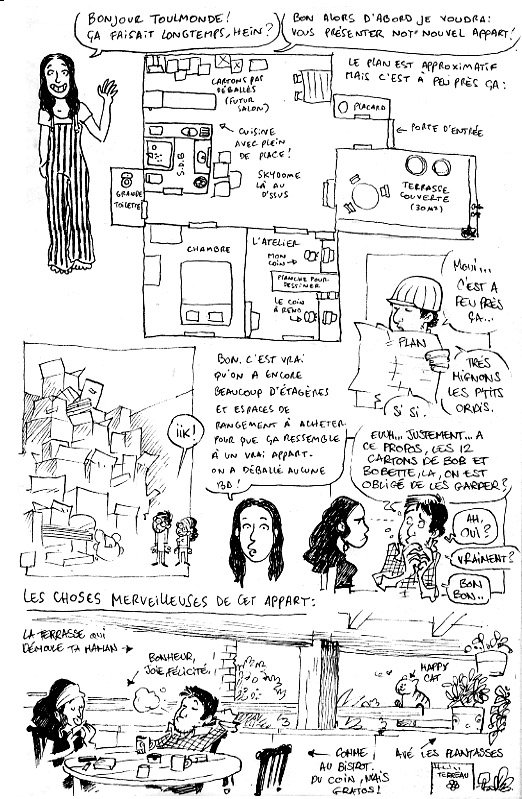 BONJOUR TOULMONDE!
ÇA FAISAIT LONGTEMPS, HEIN?
BON ALORS D'ABORD JE VOUDRAI
VOUS PRÉSENTER NOT' NOUVEL APPART!
LE PLAN EST APPROXIMATIF
MAIS C'EST A PEU PRÈS ÇA:
CARTONS PAS
DÉBALLÉS
(FUTUR
SALON)
PLACARD
PORTE D'ENTRÉE
CUISINE
AVEC PLEIN
DE PLACE!
S.D.B
SKYDOME
LÀ AU
D'SSUS
GRANDE
TOILETTE
TERRASSE
COUVERTE
(30M²)
CHAMBRE
L'ATELIER
MON
COIN
PLANCHE POUR
DESSINER
LE COIN
À RENO
MOUI...
C'EST A
PEU PRÈS
ÇA...
PLAN
TRÈS
MIGNONS
LES P'TITS
ORDIS.
SI SI.
IIK!
BON. C'EST VRAI
QU'ON A ENCORE
BEAUCOUP D'ÉTAGÈRES
ET ESPACES DE
RANGEMENT À ACHETER
POUR QUE ÇA RESSEMBLE
À UN VRAI APPART.
ON A DÉBALLÉ AUCUNE
BD!
EUUH... JUSTEMENT... A
CE PROPOS, LES 12
CARTONS DE BOB ET
BOBETTE, LA, ON EST
OBLIGÉ DE LES GARDER?
AH,
OUI?
VRAIMENT?
BON
BON..
LES CHOSES MERVEILLEUSES DE CET APPART:
LA TERRASSE QUI
DÉMOULE TA MAMAN
BONHEUR,
JOIE, FÉLICITÉ..!
HAPPY
CAT
COMME
AU BISTROT
DU COIN, MAIS
GRATOS!
AVÉ LES PLANTASSES
TERREAU